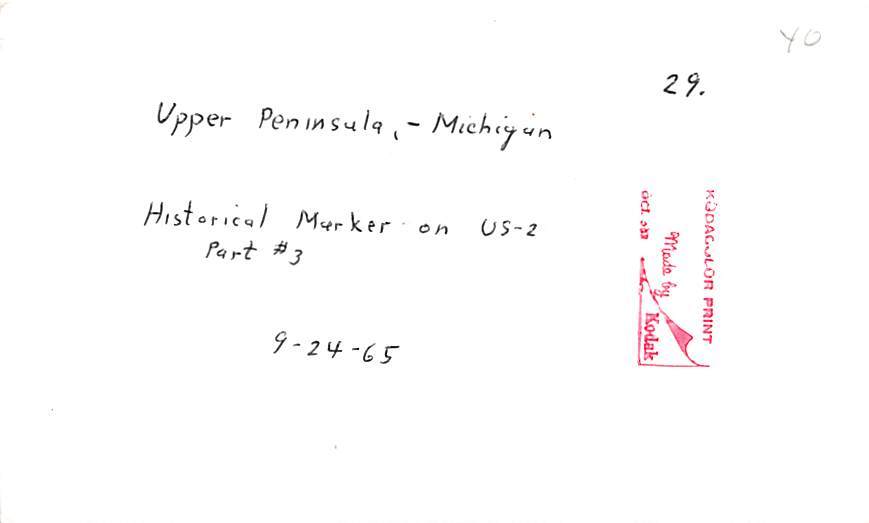 YO
29.
Upper Peninsula, - Michigan
Historical Marker on US-2
Part #3
9-24-65
KODACOLOR PRINT
Made by
Kodak
OCT.